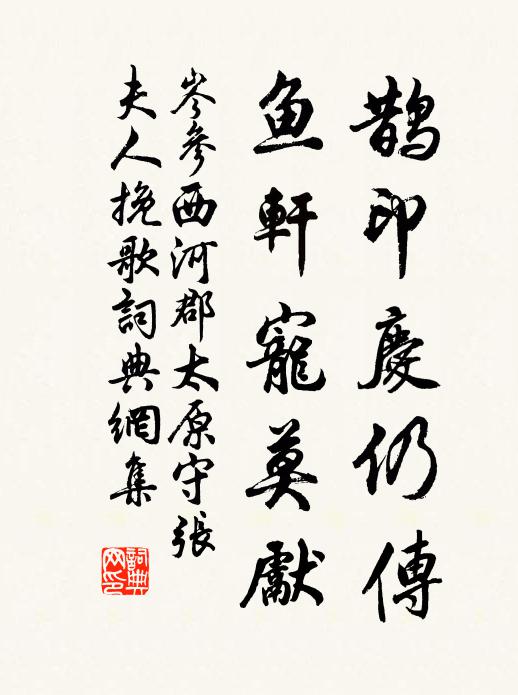 鵲印慶仍傳
鱼軒寵莫獻
岑參西河郡太原守張
夫人挽歌詞典網集
詞典网印